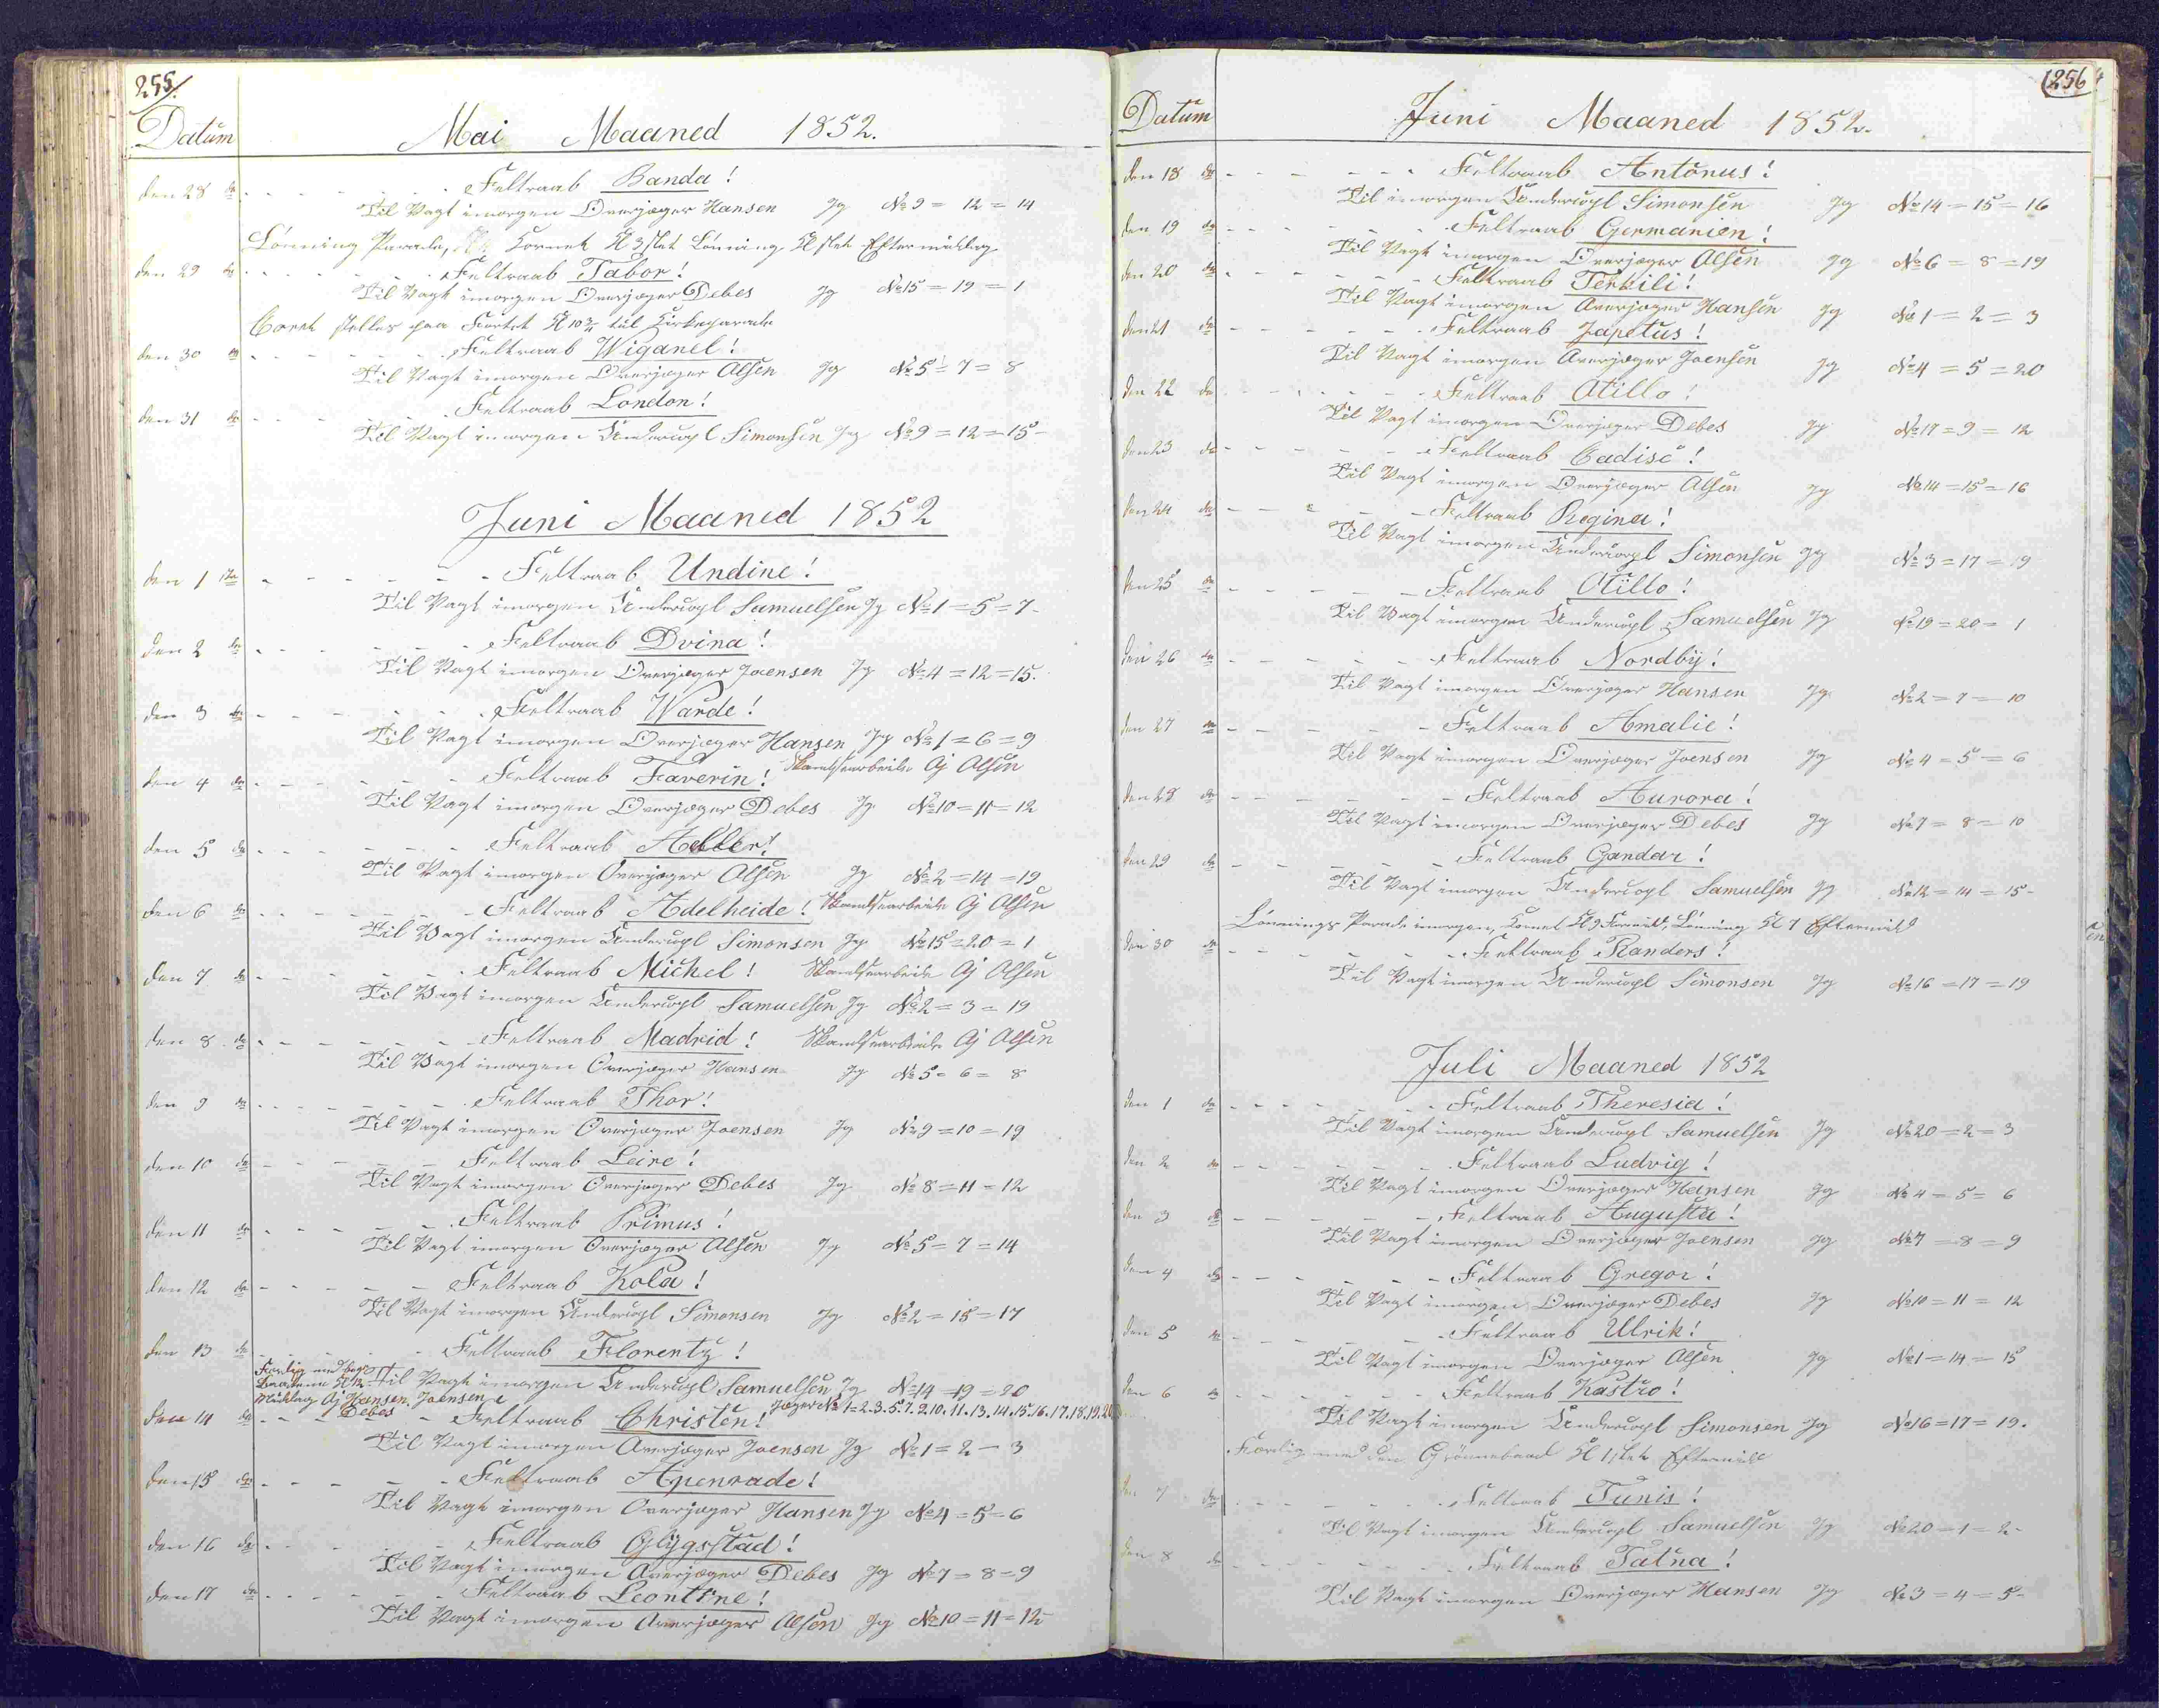 255.
Datum
Mai Maaned 1852.
den 28 de Feltraab Banda!
Til Vagt imorgen Overjæger Hansen Jg No 9 = 12 = 14
Lønning Parade, Cornet Kl 3 slet Lønning Kl slet Eftermiddag
den 29 de Feltraab Tabor!
Til Vagt imorgen Overjæger Debes Jg No 15 = 19 = 1
Coret stilles paa Fortet Kl 10 3/4 til Kirkeparade
den 30 de Feltraab Wiganel!
Til Vagt imorgen Overjæger Olsen Jg No 5 = 7 = 8
den 31 de Feltraab London!
Til Vagt imorgen Undercopl Simonsen Jg No 9 = 12 = 15 -
Juni Maaned 1852
den 1 ste Feltraab Undine!
Til Vagt imorgen Undercopl Samuelsen Jg No 1 = 5 = 7 -
den 2 den Feltraab Dvina!
Til Vagt imorgen Overjæger Joensen Jg No 4 = 12 = 15.
den 3 den Feltraab Warde!
Til Vagt imorgen Overjæger Hansen Jg No 1 = 6 = 9
den 4 de Feltraab Faverin! Skandsearbeide Oj Olsen
Til Vagt imorgen Overjæger Debes Jg No 10 = 11 = 12
den 5 de Feltraab Adler!
Til Vagt imorgen Overjæger Olsen Jg No 2 = 14 = 19
den 6 de Feltraab Adelheide! Skandsearbeide Oj Olsen
Til Vagt imorgen Undercopl Simonsen Jg No 15 = 20 = 1
den 7 de Feltraab Michel! Skandsearbeide Oj Olsen
Til Vagt imorgen Undercopl Samuelsen Jg No 2 = 3 = 19
den 8 de Feltraab Madrid! Skandsearbeide Oj Olsen
Til Vagt imorgen Overjæger Hansen Jg No 5 = 6 = 8
den 9 de Feltraab Thor!
Til Vagt imorgen Overjæger Joensen Jg No 9 = 10 = 19
den 10 de Feltraab Leire!
Til Vagt imorgen Overjæger Debes Jg No 8 = 11 = 12
den 11 de Feltraab Primus!
Til Vagt imorgen Overjæger Olsen Jg No 5 = 7 = 14
den 12 de Feltraab Kola!
Til Vagt imorgen Undercopl Simonsen Jg No 2 = 15 = 17
den 13 de Feltraab Florentz!
Færdig med begge
Baadene Kl 12 Til Vagt imorgen Undercopl Samuelsen Jg No 14 = 19 = 20
Middag Oj Hansen, Joensen &
Debes Jæger No 1=2.3.5.7.9.10.11.13.14.15.16.17.18.19.20
den 14 de Feltraab Christen!
Til Vagt imorgen Overjæger Joensen Jg No 1 = 2 = 3
den 15 de Feltraab Apenrade!
Til Vagt imorgen Overjæger Hansen Jg No 4 = 5 = 6
den 16 de Feltraab Glygsstad!
Til Vagt imorgen Overjæger Debes Jg No 7 = 8 = 9
den 17 de Feltraab Leontine!
Til Vagt imorgen Overjæger Olsen Jg No 10 = 11 = 12
256
Datum
Juni Maaned 1852.
den 18 de Feltraab Antonus!
Til imorgen Undercopl Simonsen Jg No 14 = 15 = 16
den 19 de Feltraab Germanien!
Til Vagt imorgen Overjæger Olsen Jg No 6 = 8 = 19
den 20 de Feltraab Terkili!
Til Vagt imorgen Overjæger Hansen Jg No 1 = 2 = 3
den 21 de Feltraab Japetus!
Til Vagt imorgen Overjæger Joensen Jg No 4 = 5 = 20
den 22 de Feltraab Otillo!
Til Vagt imorgen Overjæger Debes Jg No 17 = 9 = 12
den 23 de Feltraab Cadisc!
Til Vagt imorgen Overjæger Olsen Jg No 14 = 15 = 16
den 24 de Feltraab Regina!
Til Vagt imorgen Undercopl Simonsen Jg No 3 = 17 = 19
den 25 de Feltraab Otillo!
Til Vagt imorgen Undercopl Samuelsen Jg No 19 = 20 = 1
den 26 de Feltraab Nordby!
Til Vagt imorgen Overjæger Hansen Jg No 2 = 7 = 10
den 27 de Feltraab Amalie!
Til Vagt imorgen Overjæger Joensen Jg No 4 = 5 = 6
den 28 de Feltraab Aurora!
Til Vagt imorgen Overjæger Debes Jg No 7 = 8 = 10
den 29 de Feltraab Gandar!
Til Vagt imorgen Undercopl Samuelsen Jg No 12 = 14 = 15 -
Lønnings Parade imorgen, Cornet Kl 9 Formid, Lønning Kl 1 Eftermid
den 30 de Feltraab Randers!
Til Vagt imorgen Undercopl Simonsen Jg No 16 = 17 = 19
Juli Maaned 1852
den 1 de Feltraab Theresia!
Til Vagt imorgen Undercopl Samuelsen Jg No 20 = 2 = 3
den 2 de Feltraab Ludvig!
Til Vagt imorgen Overjæger Hansen Jg No 4 = 5 = 6
den 3 de Feltraab Augusta!
Til Vagt imorgen Overjæger Joensen Jg No 7 = 8 = 9
den 4 de Feltraab Gregor!
Til Vagt imorgen Overjæger Debes Jg No 10 = 11 = 12
den 5 de Feltraab Ulrik!
Til Vagt imorgen Overjæger Olsen Jg No 1 = 14 = 15
den 6 de Feltraab Kastro!
Til Vagt imorgen Undercopl Simonsen Jg No 16 = 17 = 19.
Færdig med den Grønnebaad Kl 1 slet Eftermid
den 7 de Feltraab Tunis!
Til Vagt imorgen Undercopl Samuelsen Jg No 20 = 1 = 2 -
den 8 de Feltraab Patna!
Til Vagt imorgen Overjæger Hansen Jg No 3 = 4 = 5 -